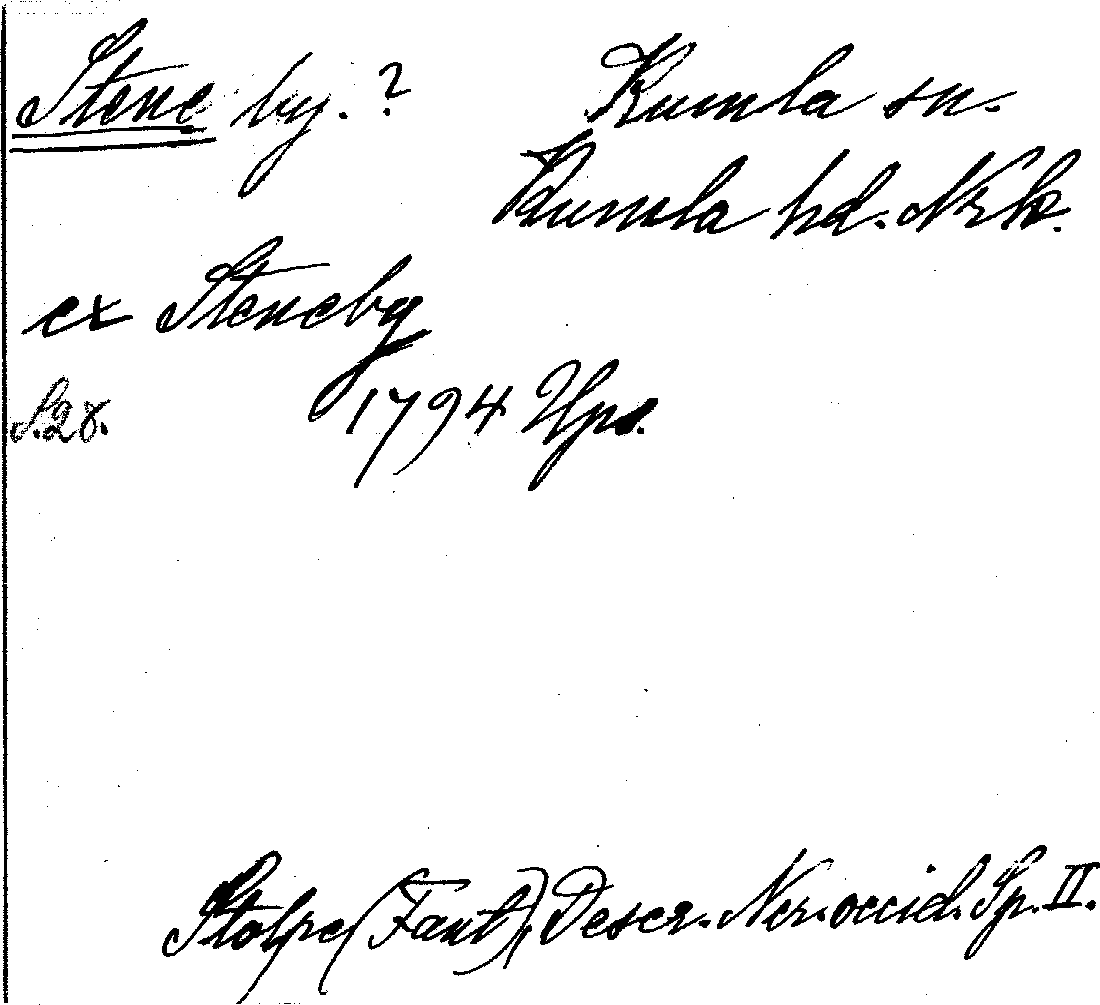 Stene by.? Kumla sn.
Kumla hd. Nrk.
ex Steneby
S.28. 1794 Ups.
Stolpe (Fant), Descr. Ner. occid. Sp. II.